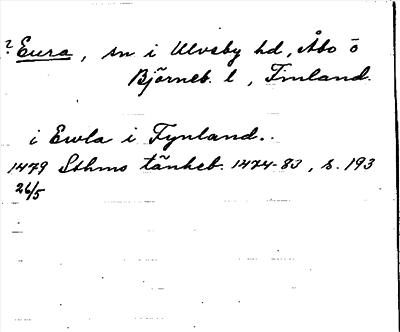 ? Eura, sn i Ulvsby hd, Åbo o
Björneb. l, Finland.
i Ewla i Fynland.
1479 Sthms tänkeb. 1474-83, s. 193
26/5